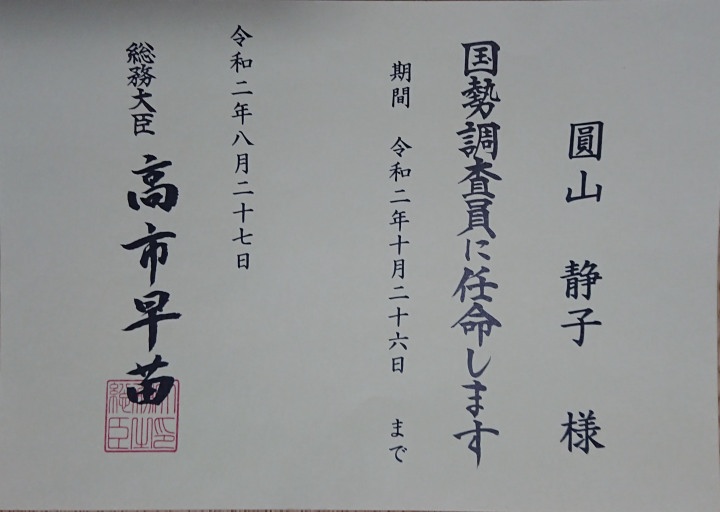 圓山 静子 様
国勢調査員に任命します
期間 令和二年十月二十六日 まで
令和二年八月二十七日
総務大臣 高市早苗
総務大臣之印